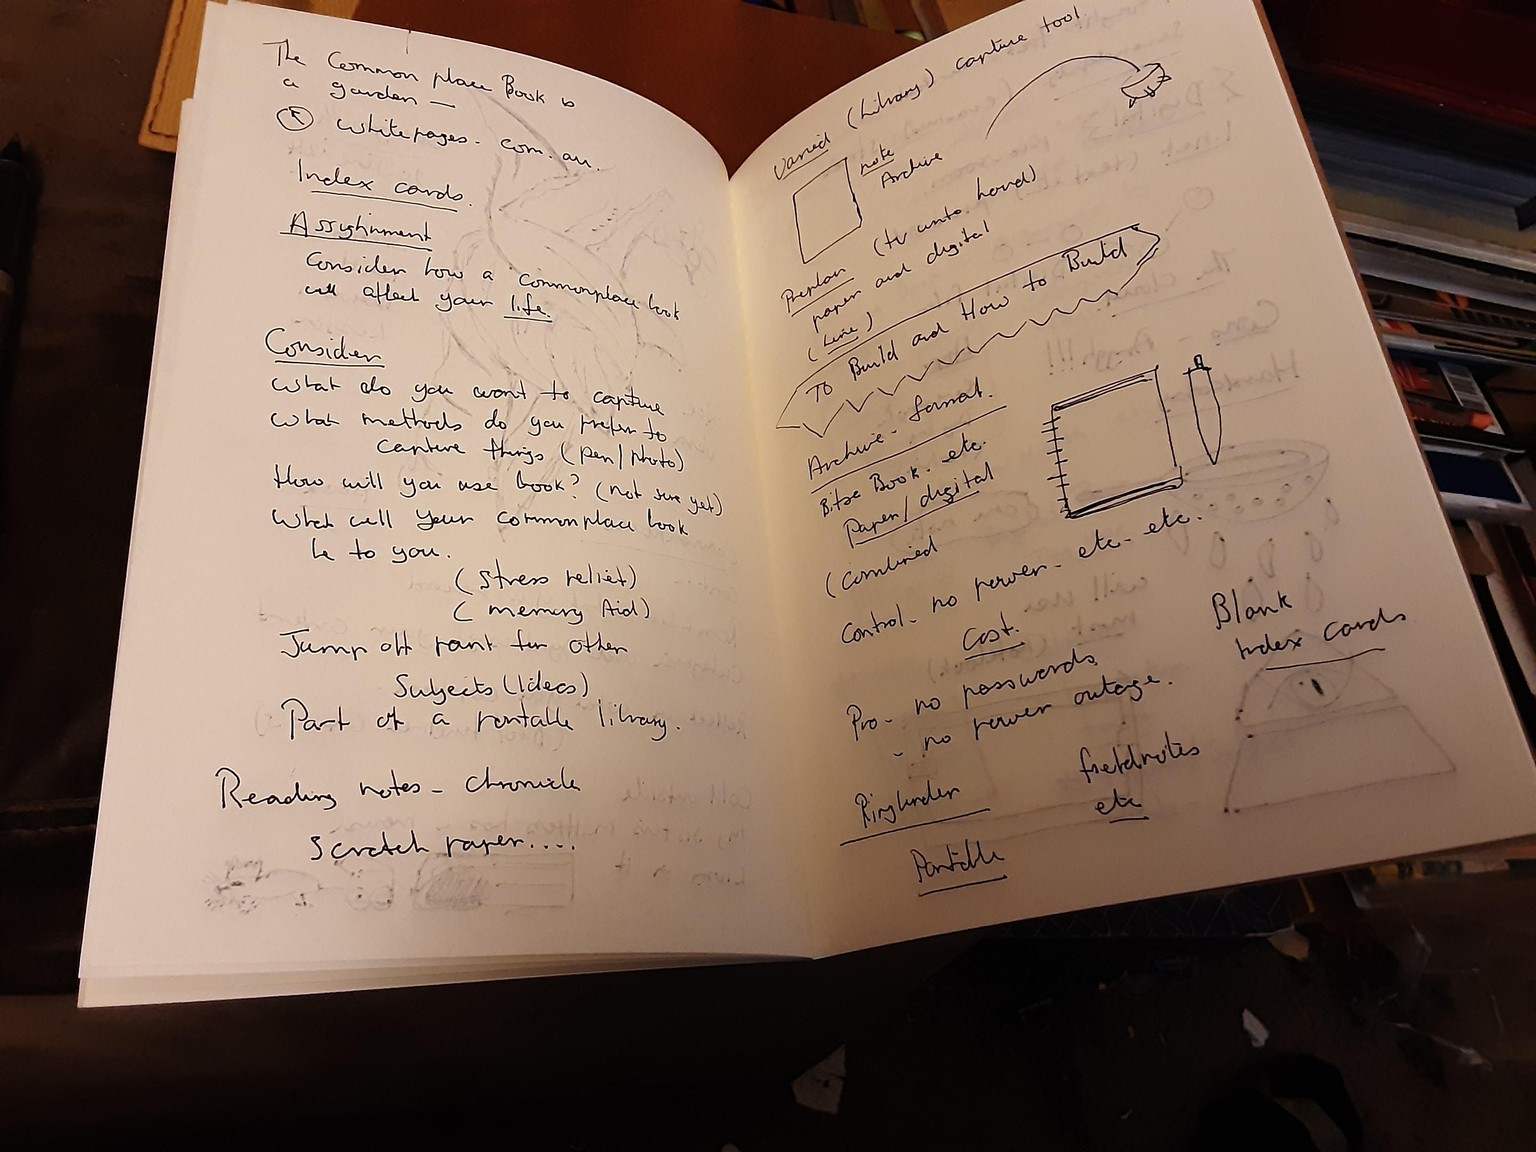 The Common place Book is
a garden —
whitepages. com. au.
Index cards.
Assighnment
Consider how a commonplace book
will affect your life.
Consider
What do you want to capture
What methods do you prefer to
capture things (pen/photo)
How will you use book? (not sure yet)
What will your commonplace book
be to you.
(stress relief)
(memory Aid)
Jump off point for other
Subjects (Ideas)
Part of a portable library.
Reading notes - chronicle
Scratch paper....
Varied (Library) capture tool
note
Archive
Preplan (tv unto hand)
paper and digital
(Line)
To Build and How to Build
Archive - format.
Book. etc.
Paper/digital
(Combined
Control - no power - etc - etc.
Cost.
Pro - no passwords
- no power outage.
Blank
Index cards
Ringbinder
fieldnotes
etc
Portable